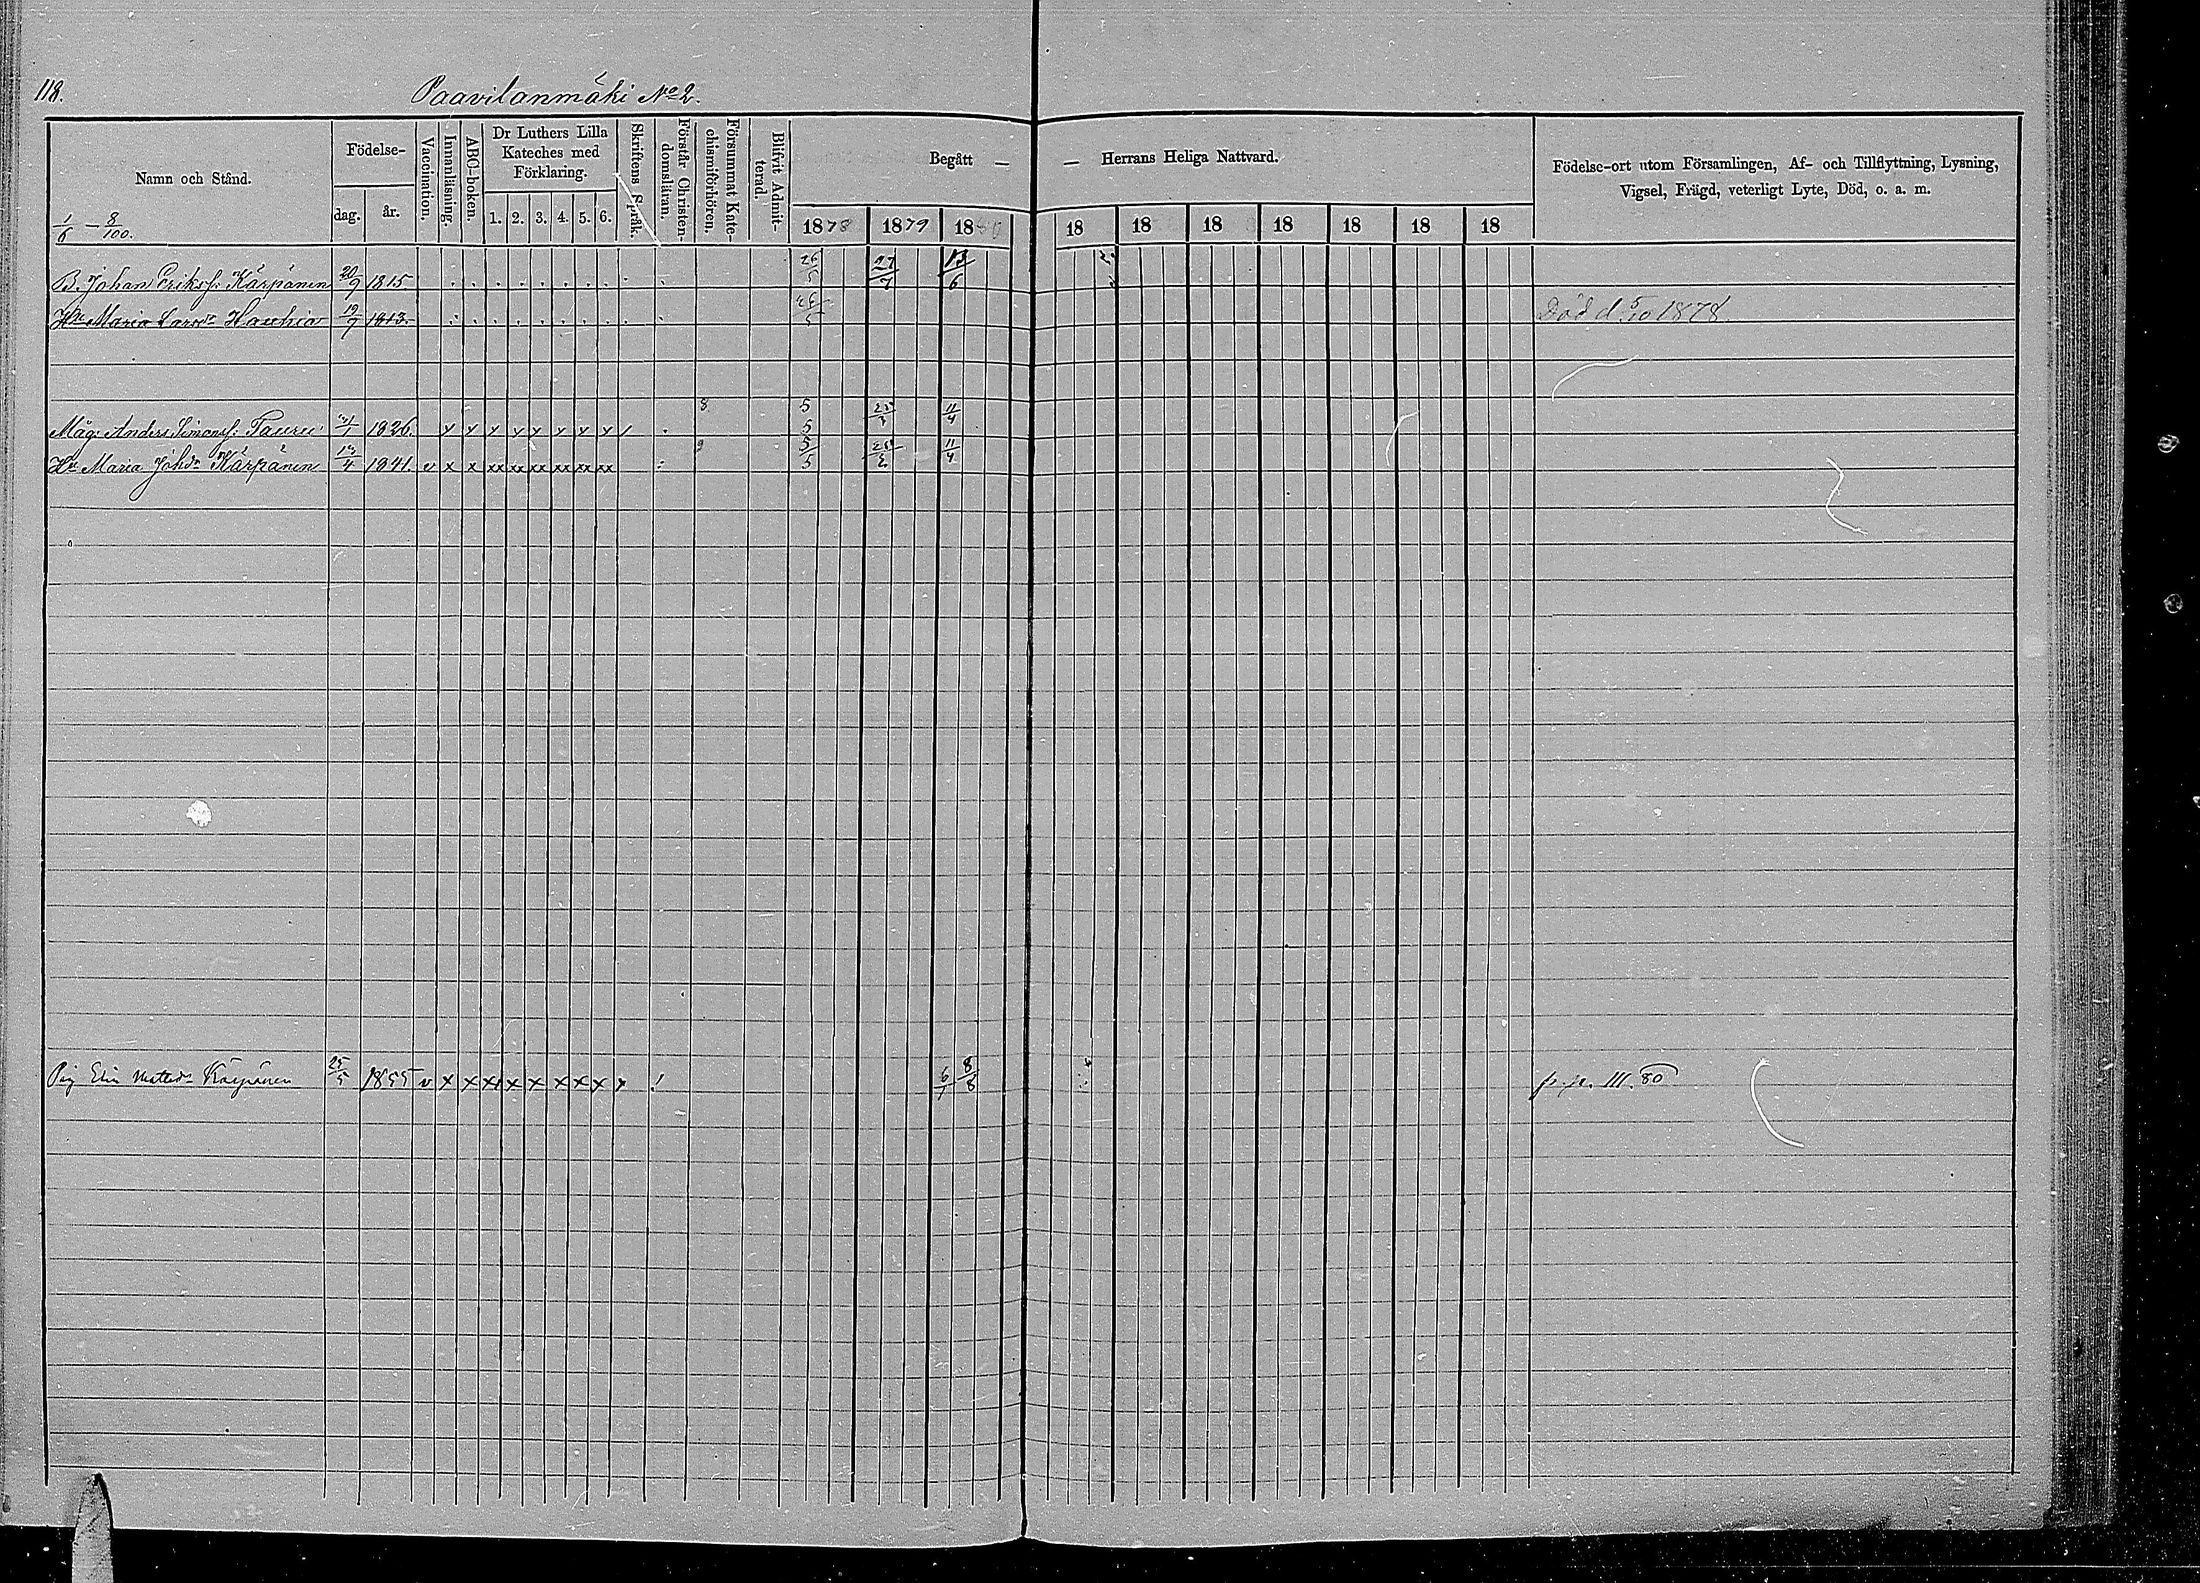 118.
Paavilanmäki No 2.
Namn och Stånd.
1/6 – 8/100.
Födelse-
dag. år.
Vaccination.
Innanläsning.
ABC-boken.
Dr Luthers Lilla
Kateches med
Förklaring.
1. 2. 3. 4. 5. 6.
Skriftens Språk.
Förstår Christen-
domsläran.
Försummat Kate-
chismiförhören.
Blifvit Admit-
terad.
Begått — — Herrans Heliga Nattvard.
1878 1879 18 18 18 18 18 18 18 18
Födelse-ort utom Församlingen, Af- och Tillflyttning, Lysning,
Vigsel, Frägd, veterligt Lyte, Död, o. a. m.
B. Johan Eriksf. Kärpänen 20/9 1815 26/5 27/7 13/6
Hu Maria Larsdr Hauhia 19/7 1813. 26/5 Död d. 5/10 1878.
Måg Anders Simonsf. Tauru 1826. x x x x x x x x 8 5/5 11/4
Hu Maria Johdr Kärpänen 1841. v x x xx xx xx xx xx xx 9 5/5 11/4
Pig Elin Mattsdr Kärpänen 25/5 1855 v x x x x x x x x x 6/1 8/8 III. 80